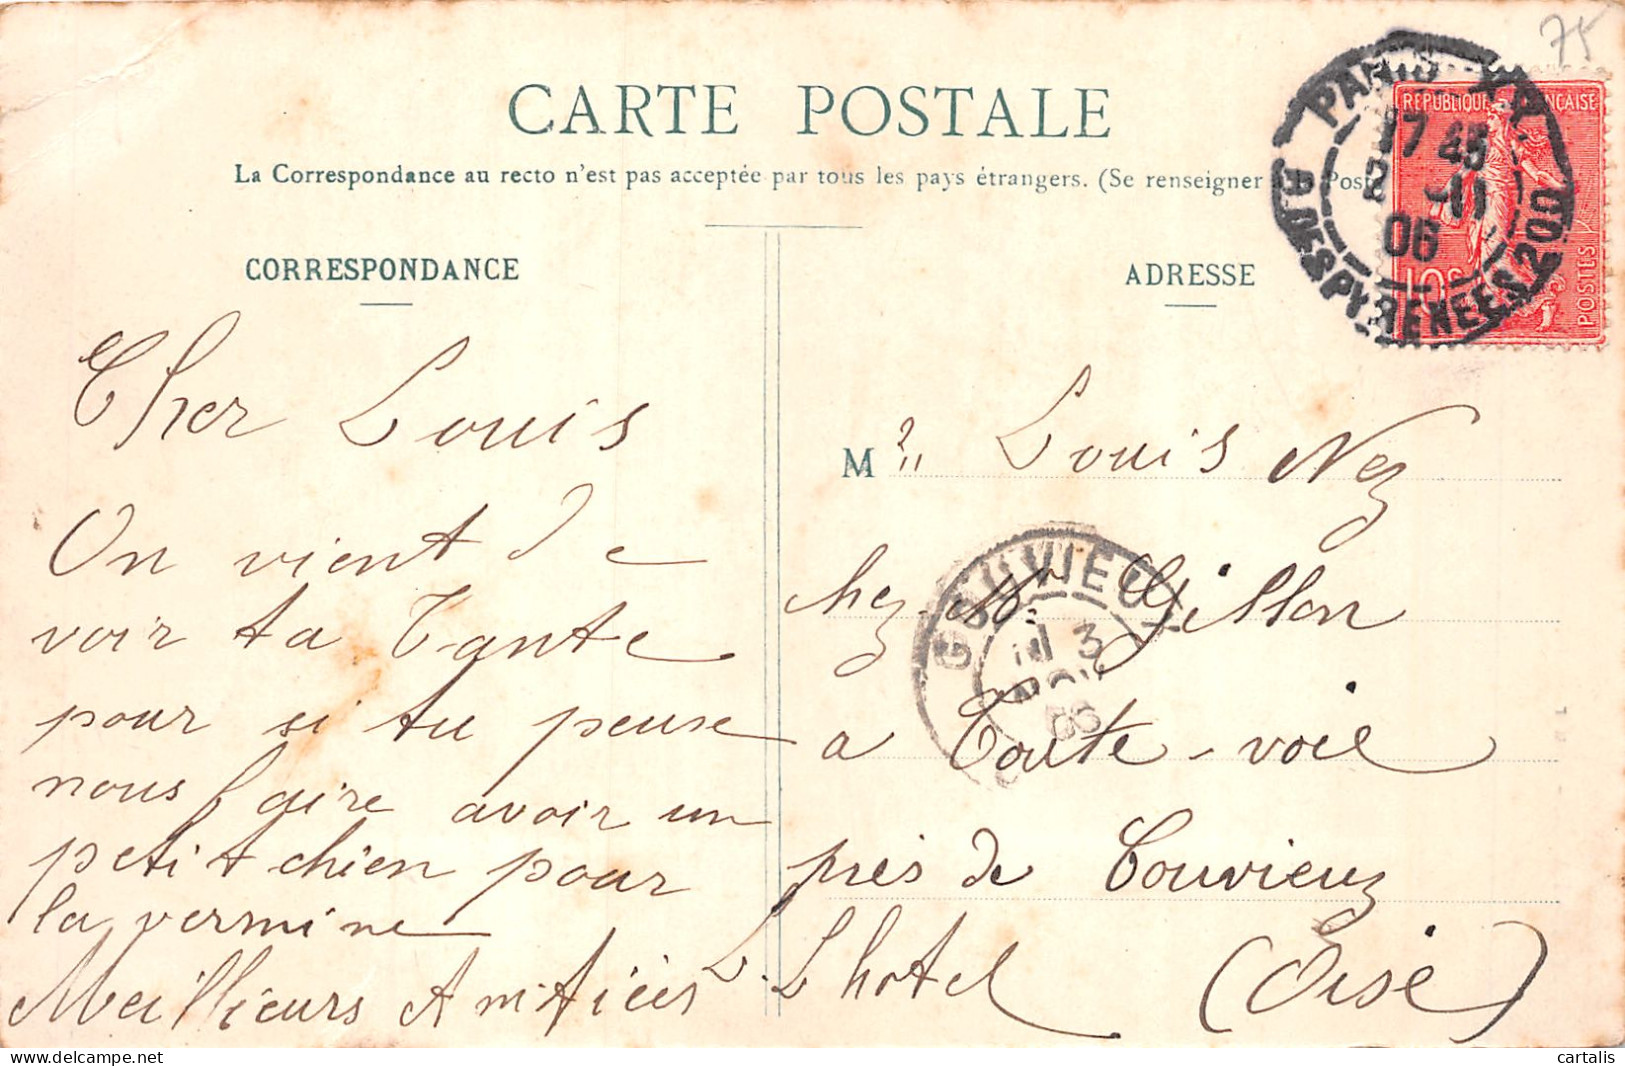 75
CARTE POSTALE
La Correspondance au recto n'est pas acceptée par tous les pays étrangers. (Se renseigner Poste
PARIS XX
17 45
2 -11
06
R. DES PYRENEES 200
REPUBLIQUE FRANÇAISE
10c
POSTES
CORRESPONDANCE
ADRESSE
Cher Louis
On vient de
voir ta Tante
pour si tu peuse
nous faire avoir un
petit chien pour
la vermine
Meillieurs Amitiées L. Lhotel
Mr Louis Nez
chez Mr. Gillon
a Toute-voie
près de Gouvieux
(Oise)
GOUVIEUX
3
NOV
06
cartalis
www.delcampe.net